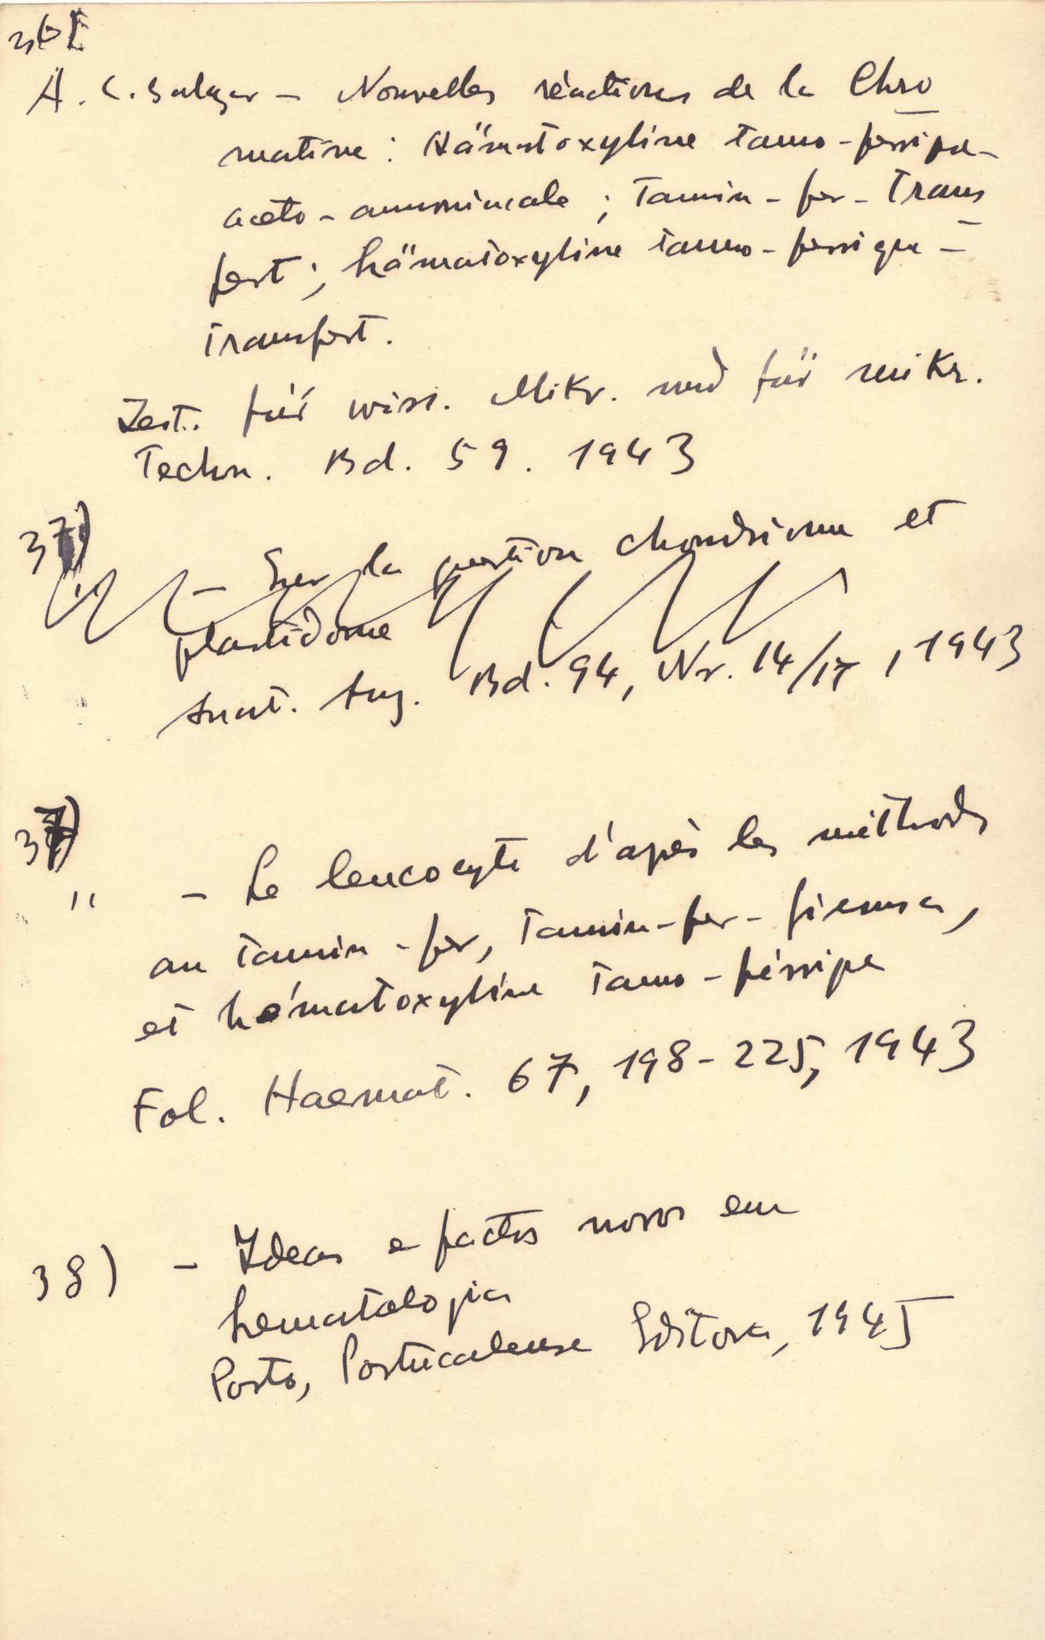 36)
A. C. Salazar - Nouvelles réactions de la Chro
matine : Hämatoxyline tanno-ferrique-
aceto-ammoniacale ; Tannin-fer-Trans
fert ; hämatoxyline tanno-ferrique-
Transfert.
Zeit. für wiss. Mikr. und für mikr.
Techn. Bd. 59. 1943
37)
" - Sur la question chondriome et
plastidome
Anat. Anz. Bd. 94, Nr. 14/17, 1943
37)
" - Le leucocyte d'après les méthodes
au Tannin-fer, Tannin-fer-giemsa,
et hématoxyline Tanno-férrique
Fol. Haemat. 67, 198-225, 1943
38) - Ideas e factos novos em
hematologia
Porto, Portucalense Editora, 1945